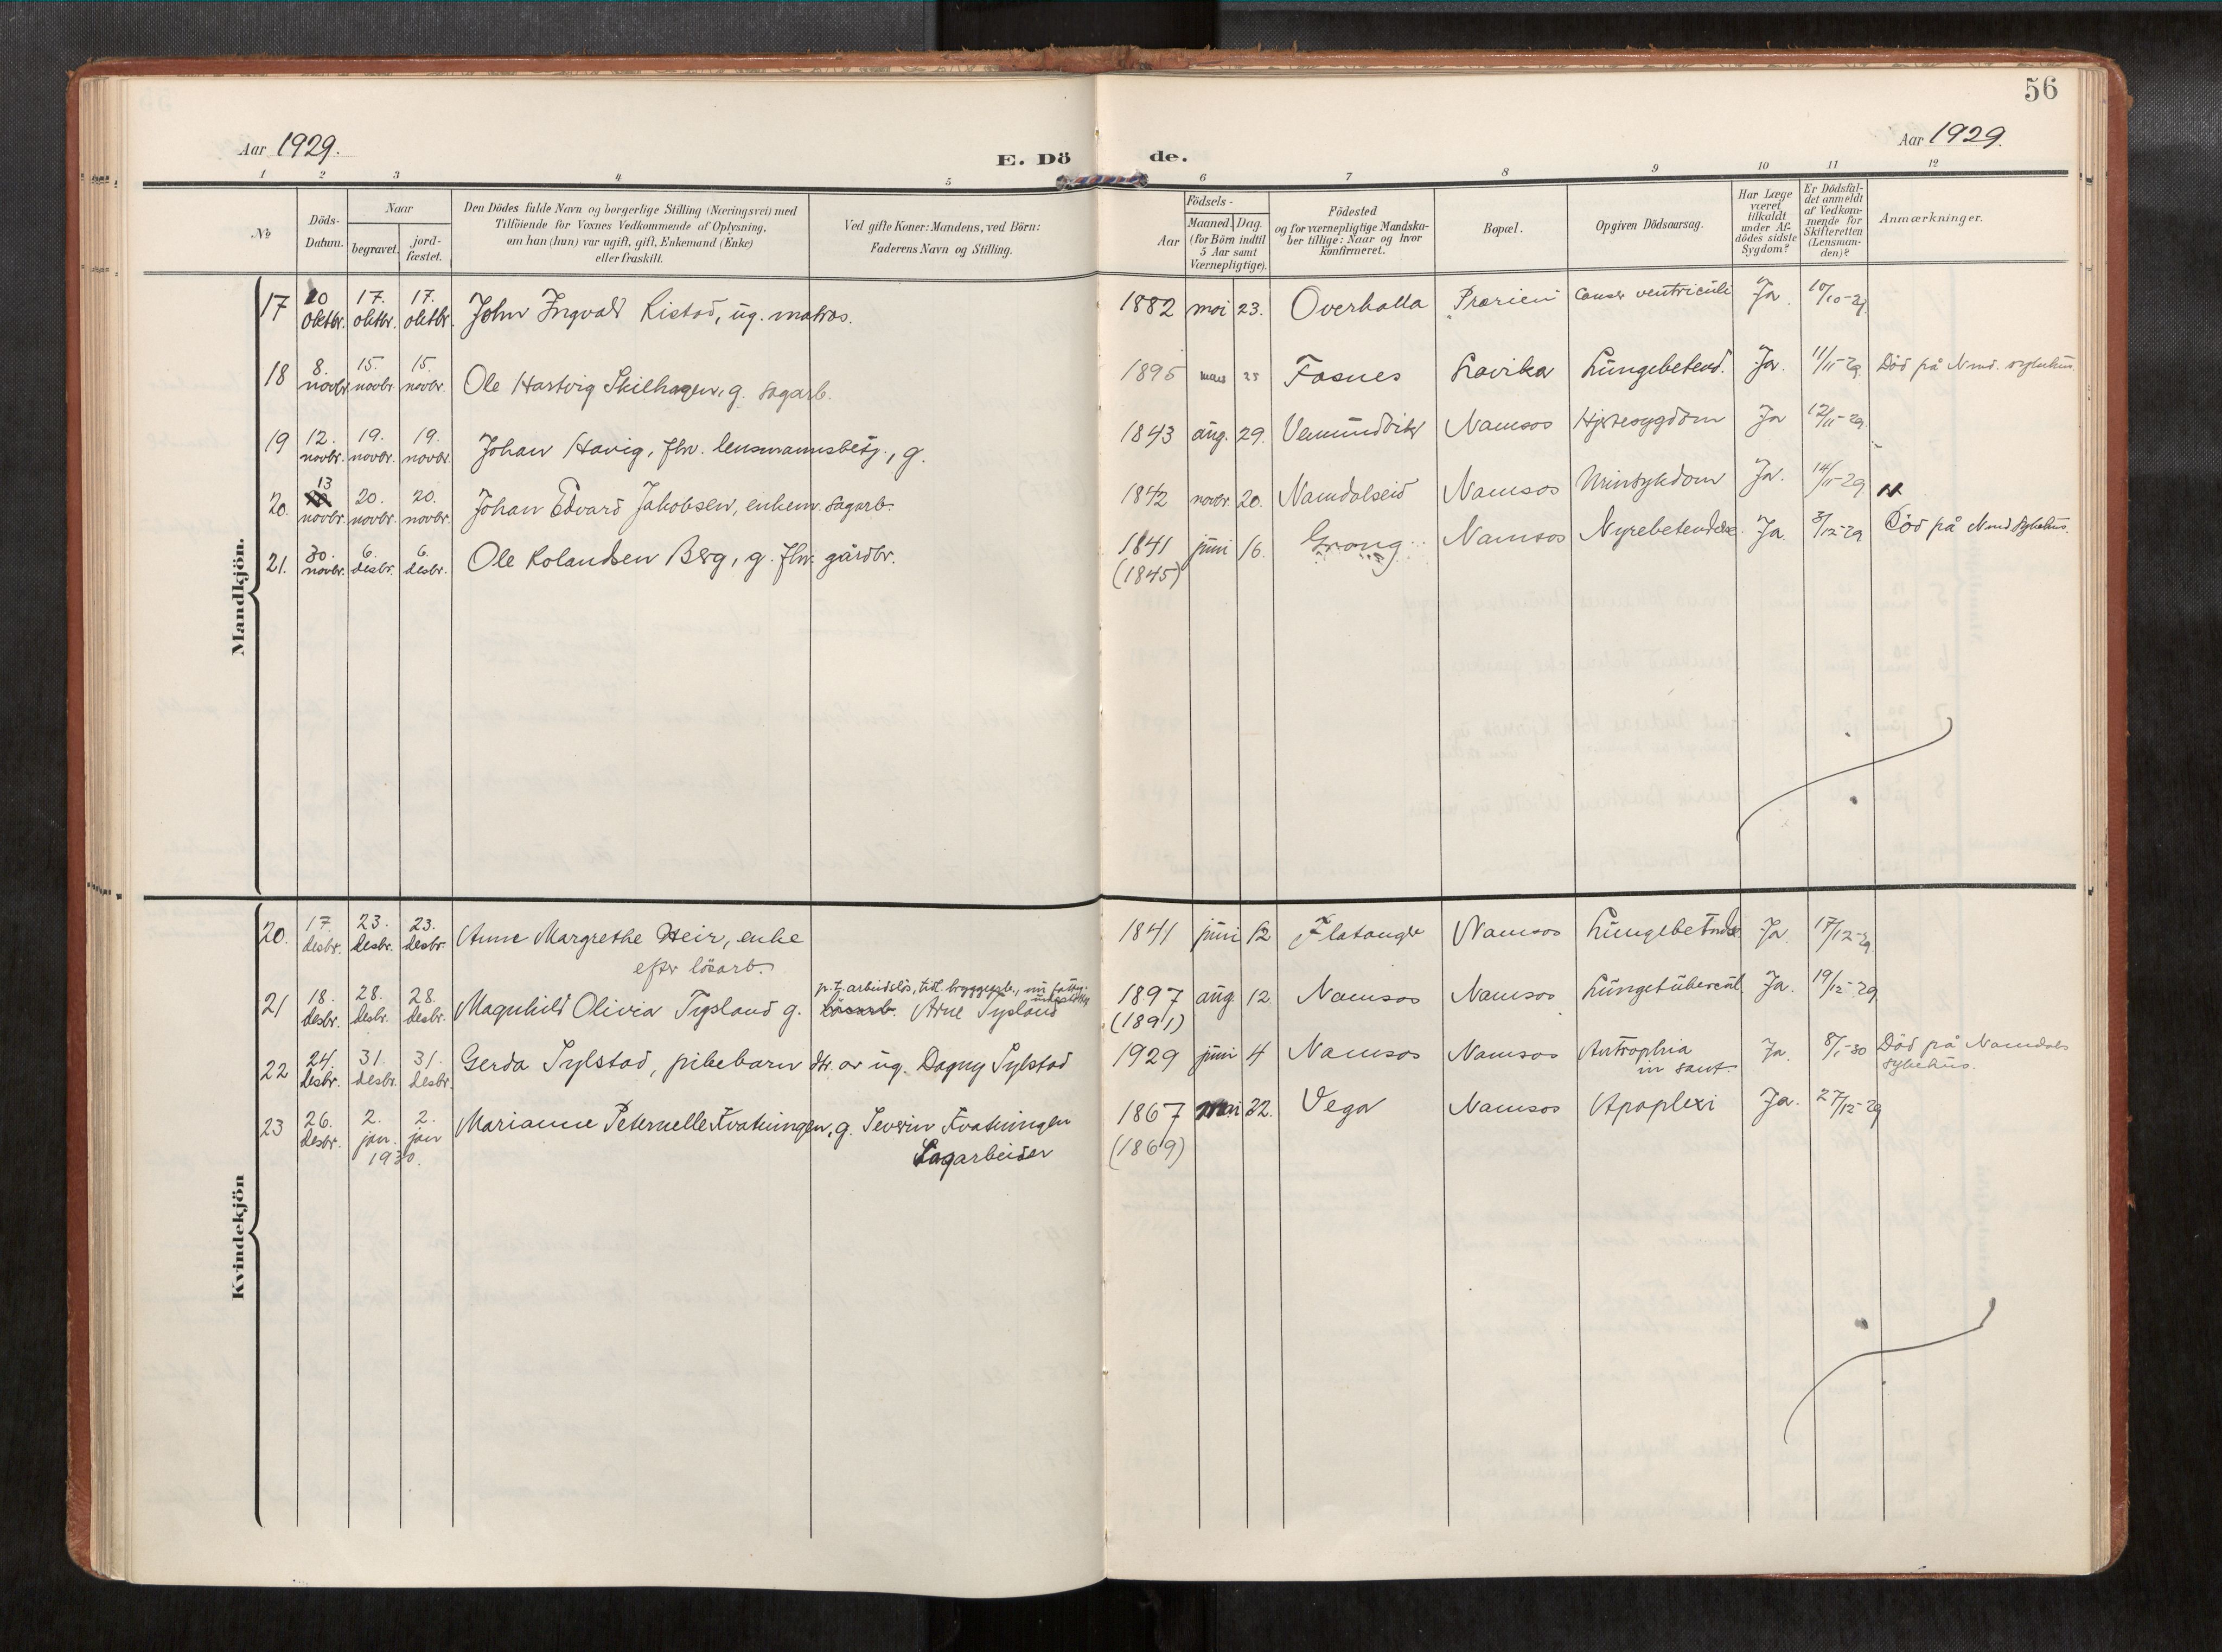 56
Aar 1929.
E. Dö de.
Aar 1929.
1 2 3 4 5 6 7 8 9 10 11 12
No
Döds-
Datum.
Naar
begravet.
jord-
fæstet.
Den Dödes fulde Navn og borgerlige Stilling (Næringsvei) med
Tilföiende for Voxnes Vedkommende af Oplysning,
om han (hun) var ugift, gift, Enkemand (Enke)
eller fraskilt.
Ved gifte Koner: Mandens, ved Börn:
Faderens Navn og Stilling.
Födsels-
Aar
Maaned. Dag.
(for Börn indtil
5 Aar samt
Værnepligtige).
Födested
og for værnepligtige Mandska-
ber tillige: Naar og hvor
konfirmeret.
Bopæl.
Opgiven Dödsaarsag.
Har Læge
været
tilkaldt
under Af-
dödes sidste
Sygdom?
Er Dödsfal-
det anmeldt
af Vedkom-
mende for
Skifteretten
(Lensman-
den)?
Anmærkninger.
Mandkjön.
17 10 oktbr. 17. oktbr. 17. oktbr. John Ingvald Ristad, ug. matros. 1882 mai 23. Overhalla Prærien Cancer ventriculi Ja. 10/10-29
18 8. novbr. 15. novbr. 15. novbr. Ole Hartvig Skilhagen, g. sagarb. 1895 mars 25 Fosnes Lavika Lungebetend. Ja. 11/11-29. Död på Nmd. sykehus.
19 12. novbr. 19. novbr. 19. novbr. Johan Havig, fhv. lensmannsbetj., g. 1843 aug. 29. Vemundvik Namsos Hjertesygdom Ja 12/11-29.
20. 13 novbr. 20. novbr. 20. novbr. Johan Edvard Jakobsen, enkem. sagarb. 1842 novbr. 20. Namdalseid Namsos Urinsykdom Ja. 14/11-29
21. 30. novbr. 6. desbr. 6. desbr. Ole Rolandsen Berg, g. fhv. gårdbr. 1841 juni 16. Grong Namsos Nyrebetendelse Ja. 3/12-29 Död på Nmd sykehus.
(1845)
Kvindekjön
20. 17. desbr. 23. desbr. 23. desbr. Anne Margrethe Heir, enke 1841 juni 12 Flatanger Namsos Lungebetndse. Ja. 17/12-29
efter lösarb.
p.t. arbeidslös, tidl. bryggearb., nu fattig-
understöttet
21 18. desbr. 28. desbr. 28. desbr. Magnhild Olivia Tysland g. lösarb. Arne Tysland 1897 aug. 12. Namsos Namsos Lungetubercul. Ja. 19/12-29
(1891)
22 24. desbr. 31. desbr. 31. desbr. Gerda Sylstad, pikebarn dtr. av ug. Dagny Sylstad 1929 juni 4 Namsos Namsos Antrophia Ja. 8/1-30 Död på Namdals
sykehus.
23 26. desbr. 2. jan. 2. jan Marianne Peternelle Kvatningen, g. Severin Kvatningen 1867 mai 22. Vega Namsos Apoplexi Ja. 27/12-29
1930.
Sagarbeider
(1869)